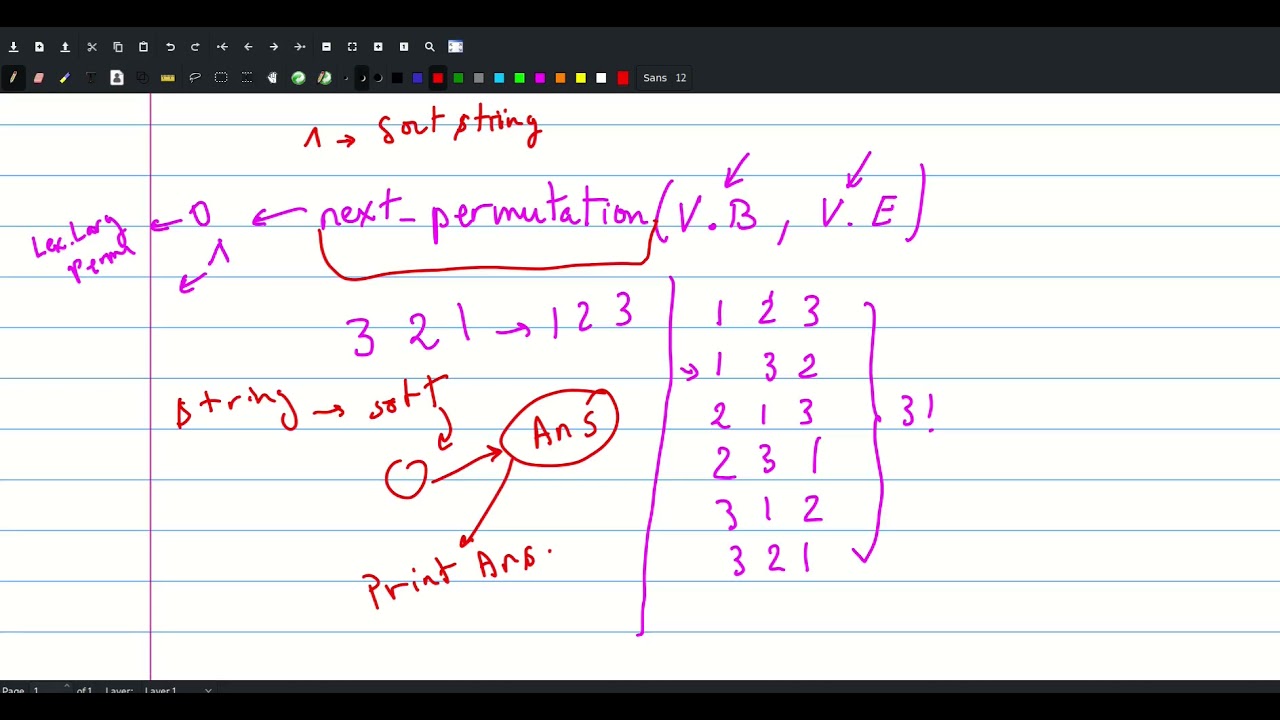 Sans 12
1 → Sort string
next_permutation(V.B, V.E)
0
1
Lex. Larg
perm
3 2 1 → 1 2 3
1 2 3
1 3 2
2 1 3
2 3 1
3 1 2
3 2 1
3!
string → sort
Ans
Print Ans.
Page 1 of 1 Layer: Layer 1